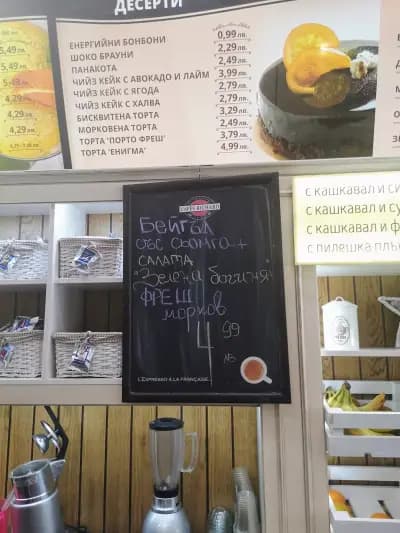 ДЕСЕРТИ
ЕНЕРГИЙНИ БОНБОНИ 0,99 лв.
ШОКО БРАУНИ 2,29 лв.
ПАНАКОТА 2,49 лв.
ЧИЙЗ КЕЙК С АВОКАДО И ЛАЙМ 3,99 лв.
ЧИЙЗ КЕЙК С ЯГОДА 2,79 лв.
ЧИЙЗ КЕЙК С ХАЛВА 2,79 лв.
БИСКВИТЕНА ТОРТА 3,29 лв.
МОРКОВЕНА ТОРТА 2,49 лв.
ТОРТА "ПОРТО ФРЕШ" 3,79 лв.
ТОРТА "ЕНИГМА" 4,99 лв.
5,49 лв.
5,49 лв.
4,29 лв.
4,29 лв.
4,29 лв.
CAFÉS RICHARD
Бейгъл
със сьомга +
САЛАТА
"Зелена богиня"
ФРЕШ
морков
4 99
лв
L'ESPRESSO À LA FRANÇAISE
с кашкавал и си
с кашкавал и су
с кашкавал и ф
с пилешка плъ